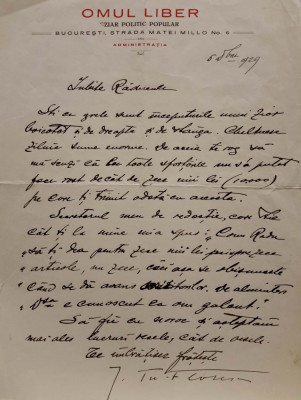 OMUL LIBER
ZIAR POLITIC POPULAR
BUCUREȘTI, STRADA MATEI MILLO No. 6
ADMINISTRAȚIA
5 1929
Iubite Răducule
Știi ce grele sunt începuturile unui ziar
boicotat și de dreapta și de stânga. Cheltuesc
zilnic sume enorme. De aceia te rog să
mă scuzi că cu toate sforțările nu să putut
face rost decât de zece mii lei (10000)
pe care ți trimit odată cu aceasta.
Secretarul meu de redacție, care ție
cât și la mine mi-a spus: Conu Radu
să-ți dea pentru zece mii lei
articole, nu zece, căci așa se obișnuește
când se dă avans De altminteri
e cunoscut ca om galant!
Să fie cu noroc și așteptăm
mai ales lucruri vesele, cât de vesele.
Te îmbrățișez frățește